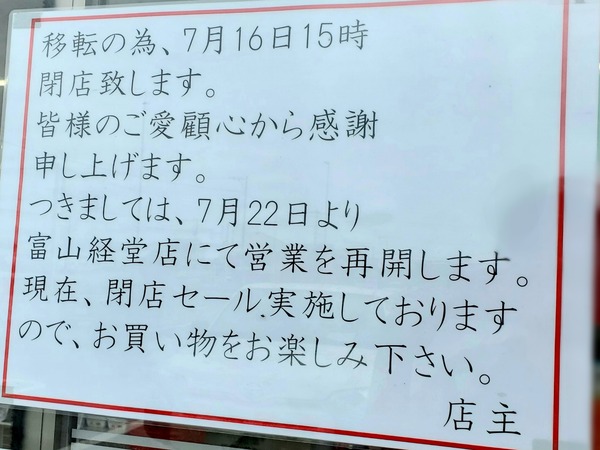 移転の為、7月16日15時
閉店致します。
皆様のご愛顧心から感謝
申し上げます。
つきましては、7月22日より
富山経堂店にて営業を再開します。
現在、閉店セール.実施しております
ので、お買い物をお楽しみ下さい。
店主